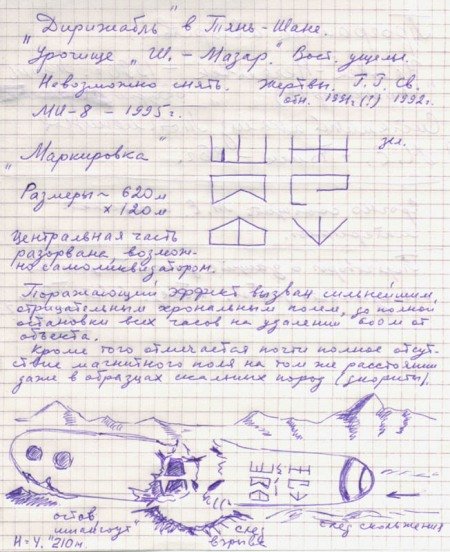 "Дирижабль" в Тянь-Шане.
Урочище "Ш. - Мазар." Вост. ущелье.
Невозможно снять. Жертвы. Г.Г. Св.
отн. 1991г.(?) 1992г.
МИ-8 - 1995г.
"Маркировка"
зел.
Размеры ~ 620м
x 120м
Центральная часть
разорвана, возмож-
но самоликвизатором.
Поражающий эффект вызван сильнейшим,
отрицательным хрональным полем, до полной
остановки всех часов на удалении 600м от
объекта.
Кроме того отмечается почти полное отсут-
ствие магнитного поля на том же расстоянии
даже в образцах скальных пород (диориты).
остов
"шпангоут"
H=4. "210м.
след
взрыва
след скольжения